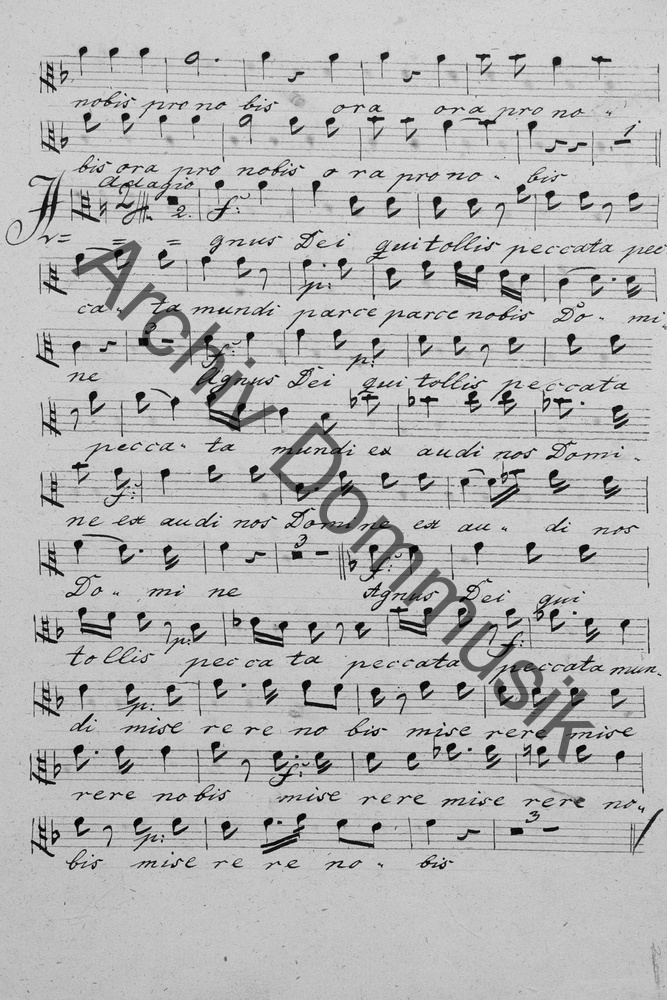 nobis pro no bis ora ora pro no „
bis ora pro nobis o ra pro no - bis
1
Adagio
2. f:
gnus Dei qui tollis peccata pec
p:
ca - ta mundi parce parce nobis Do - mi -
2 f: p:
ne Agnus Dei qui tollis peccata
pecca - ta mundi ex audi nos Domi -
f:
ne ex audi nos Domi ne ex au „ di nos
3 f:
Do - mi ne Agnus Dei qui
p: f:
tollis pecca ta peccata peccata mun -
p:
di mise re re no bis mise rere mise
f:
rere nobis mise rere mise rere no „
p: 3
bis mise re re no - bis
Archiv Dommusik